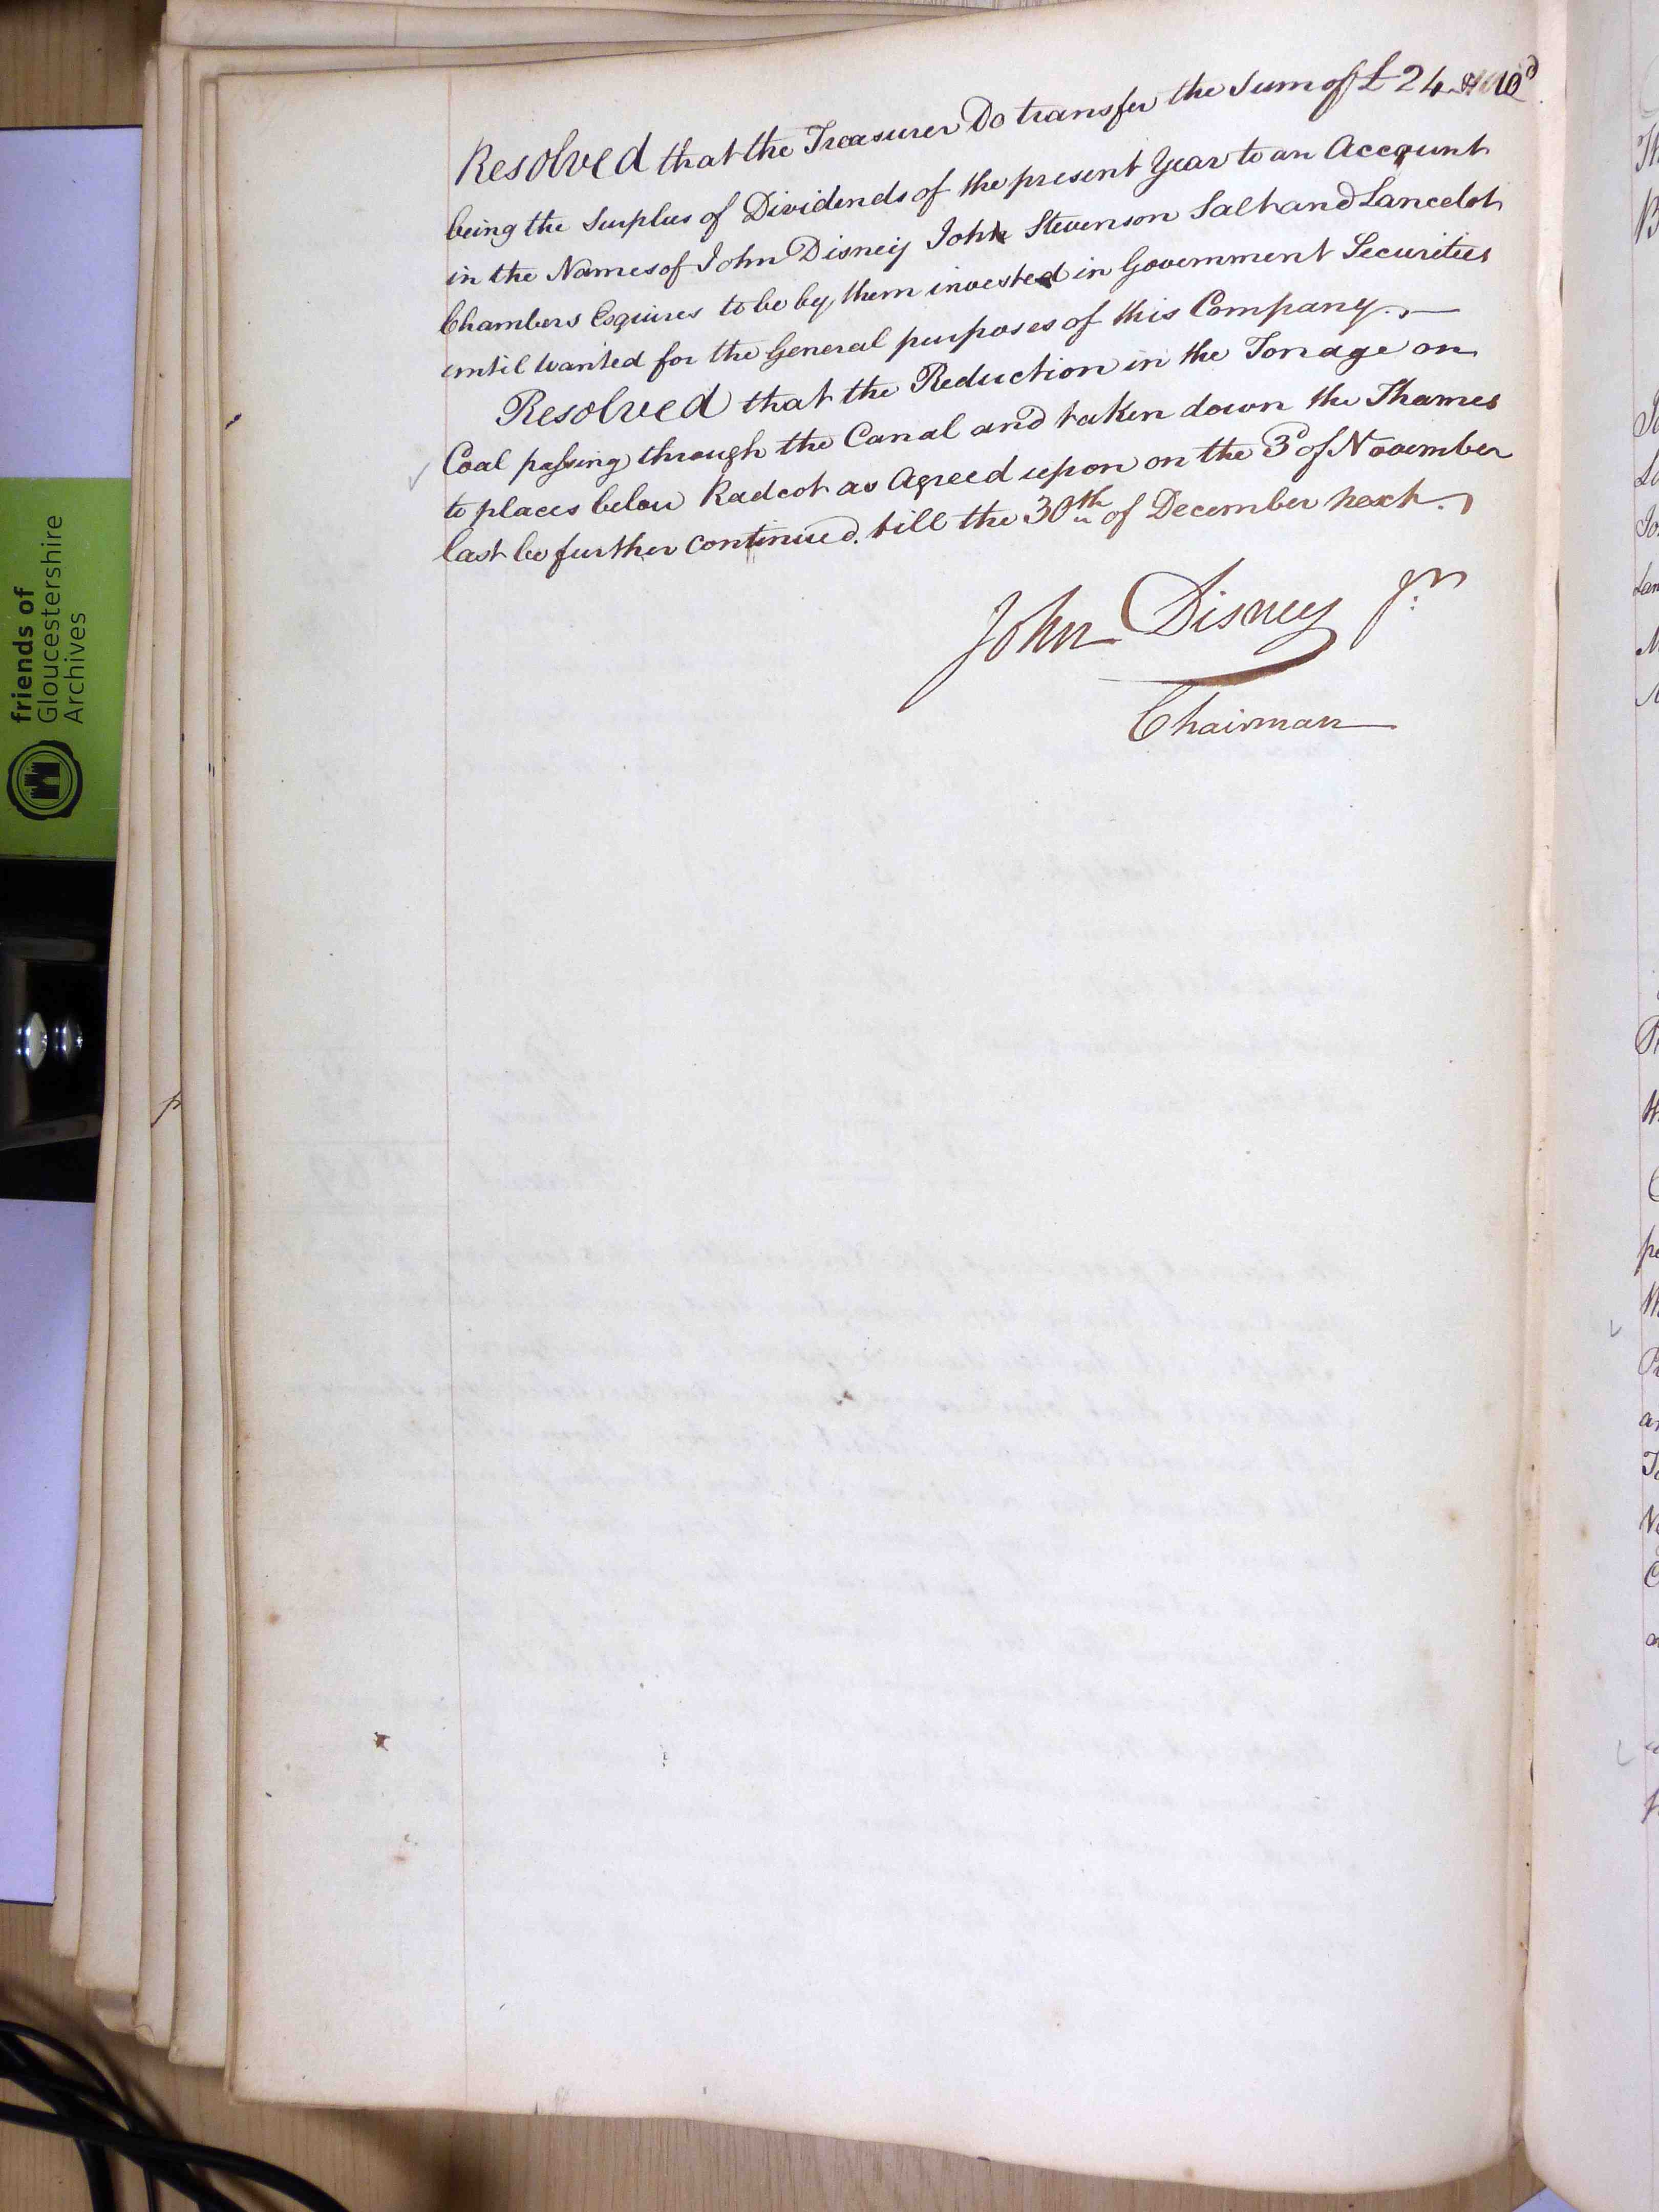 Resolved that the Treasurer Do transfer the Sum of £ 24
being the Surplus of Dividends of the present Year to an Account
in the Names of John Disney John Stevenson Salt and Lancelot
Chambers Esquires to be by them invested in Government Securities
until wanted for the General purposes of this Company. —
Resolved that the Reduction in the Tonage on
Coal passing through the Canal and taken down the Thames
to places below Radcot as Agreed upon on the 3d of November
last be further continued. till the 30th of December next.
John Disney Jn
Chairman
friends of
Gloucestershire
Archives